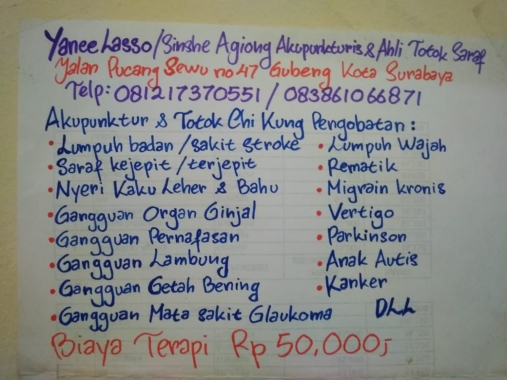 Yanee Lasso/Sinshe Agiong Akupunkturis & Ahli Totok Saraf
Jalan Pucang Sewu no 47 Gubeng Kota Surabaya
Telp: 081217370551 / 083861066871
Akupunktur & Totok Chi Kung Pengobatan :
• Lumpuh badan /sakit stroke • Lumpuh Wajah
• Saraf kejepit /terjepit • Rematik
• Nyeri Kaku Leher & Bahu • Migrain kronis
• Gangguan Organ Ginjal • Vertigo
• Gangguan Pernafasan • Parkinson
• Gangguan Lambung • Anak Autis
• Gangguan Getah Bening • Kanker
• Gangguan Mata sakit Glaukoma DLL
Biaya Terapi Rp 50,000,-